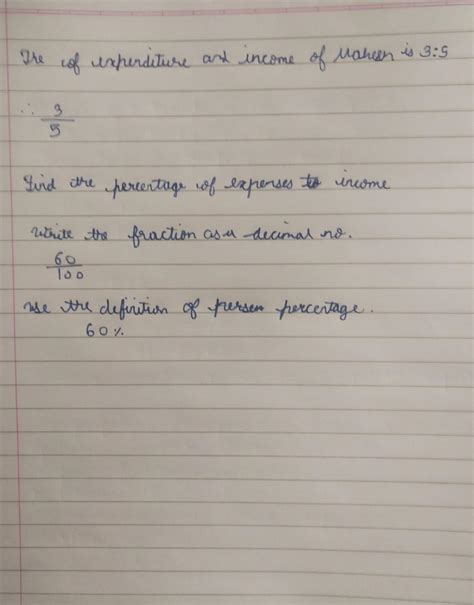 The of expenditure and income of Maheen is 3:5
∴ 3/5
Find the percentage of expenses to income
write the fraction as a decimal no.
60/100
use the definition of persen percentage.
60%